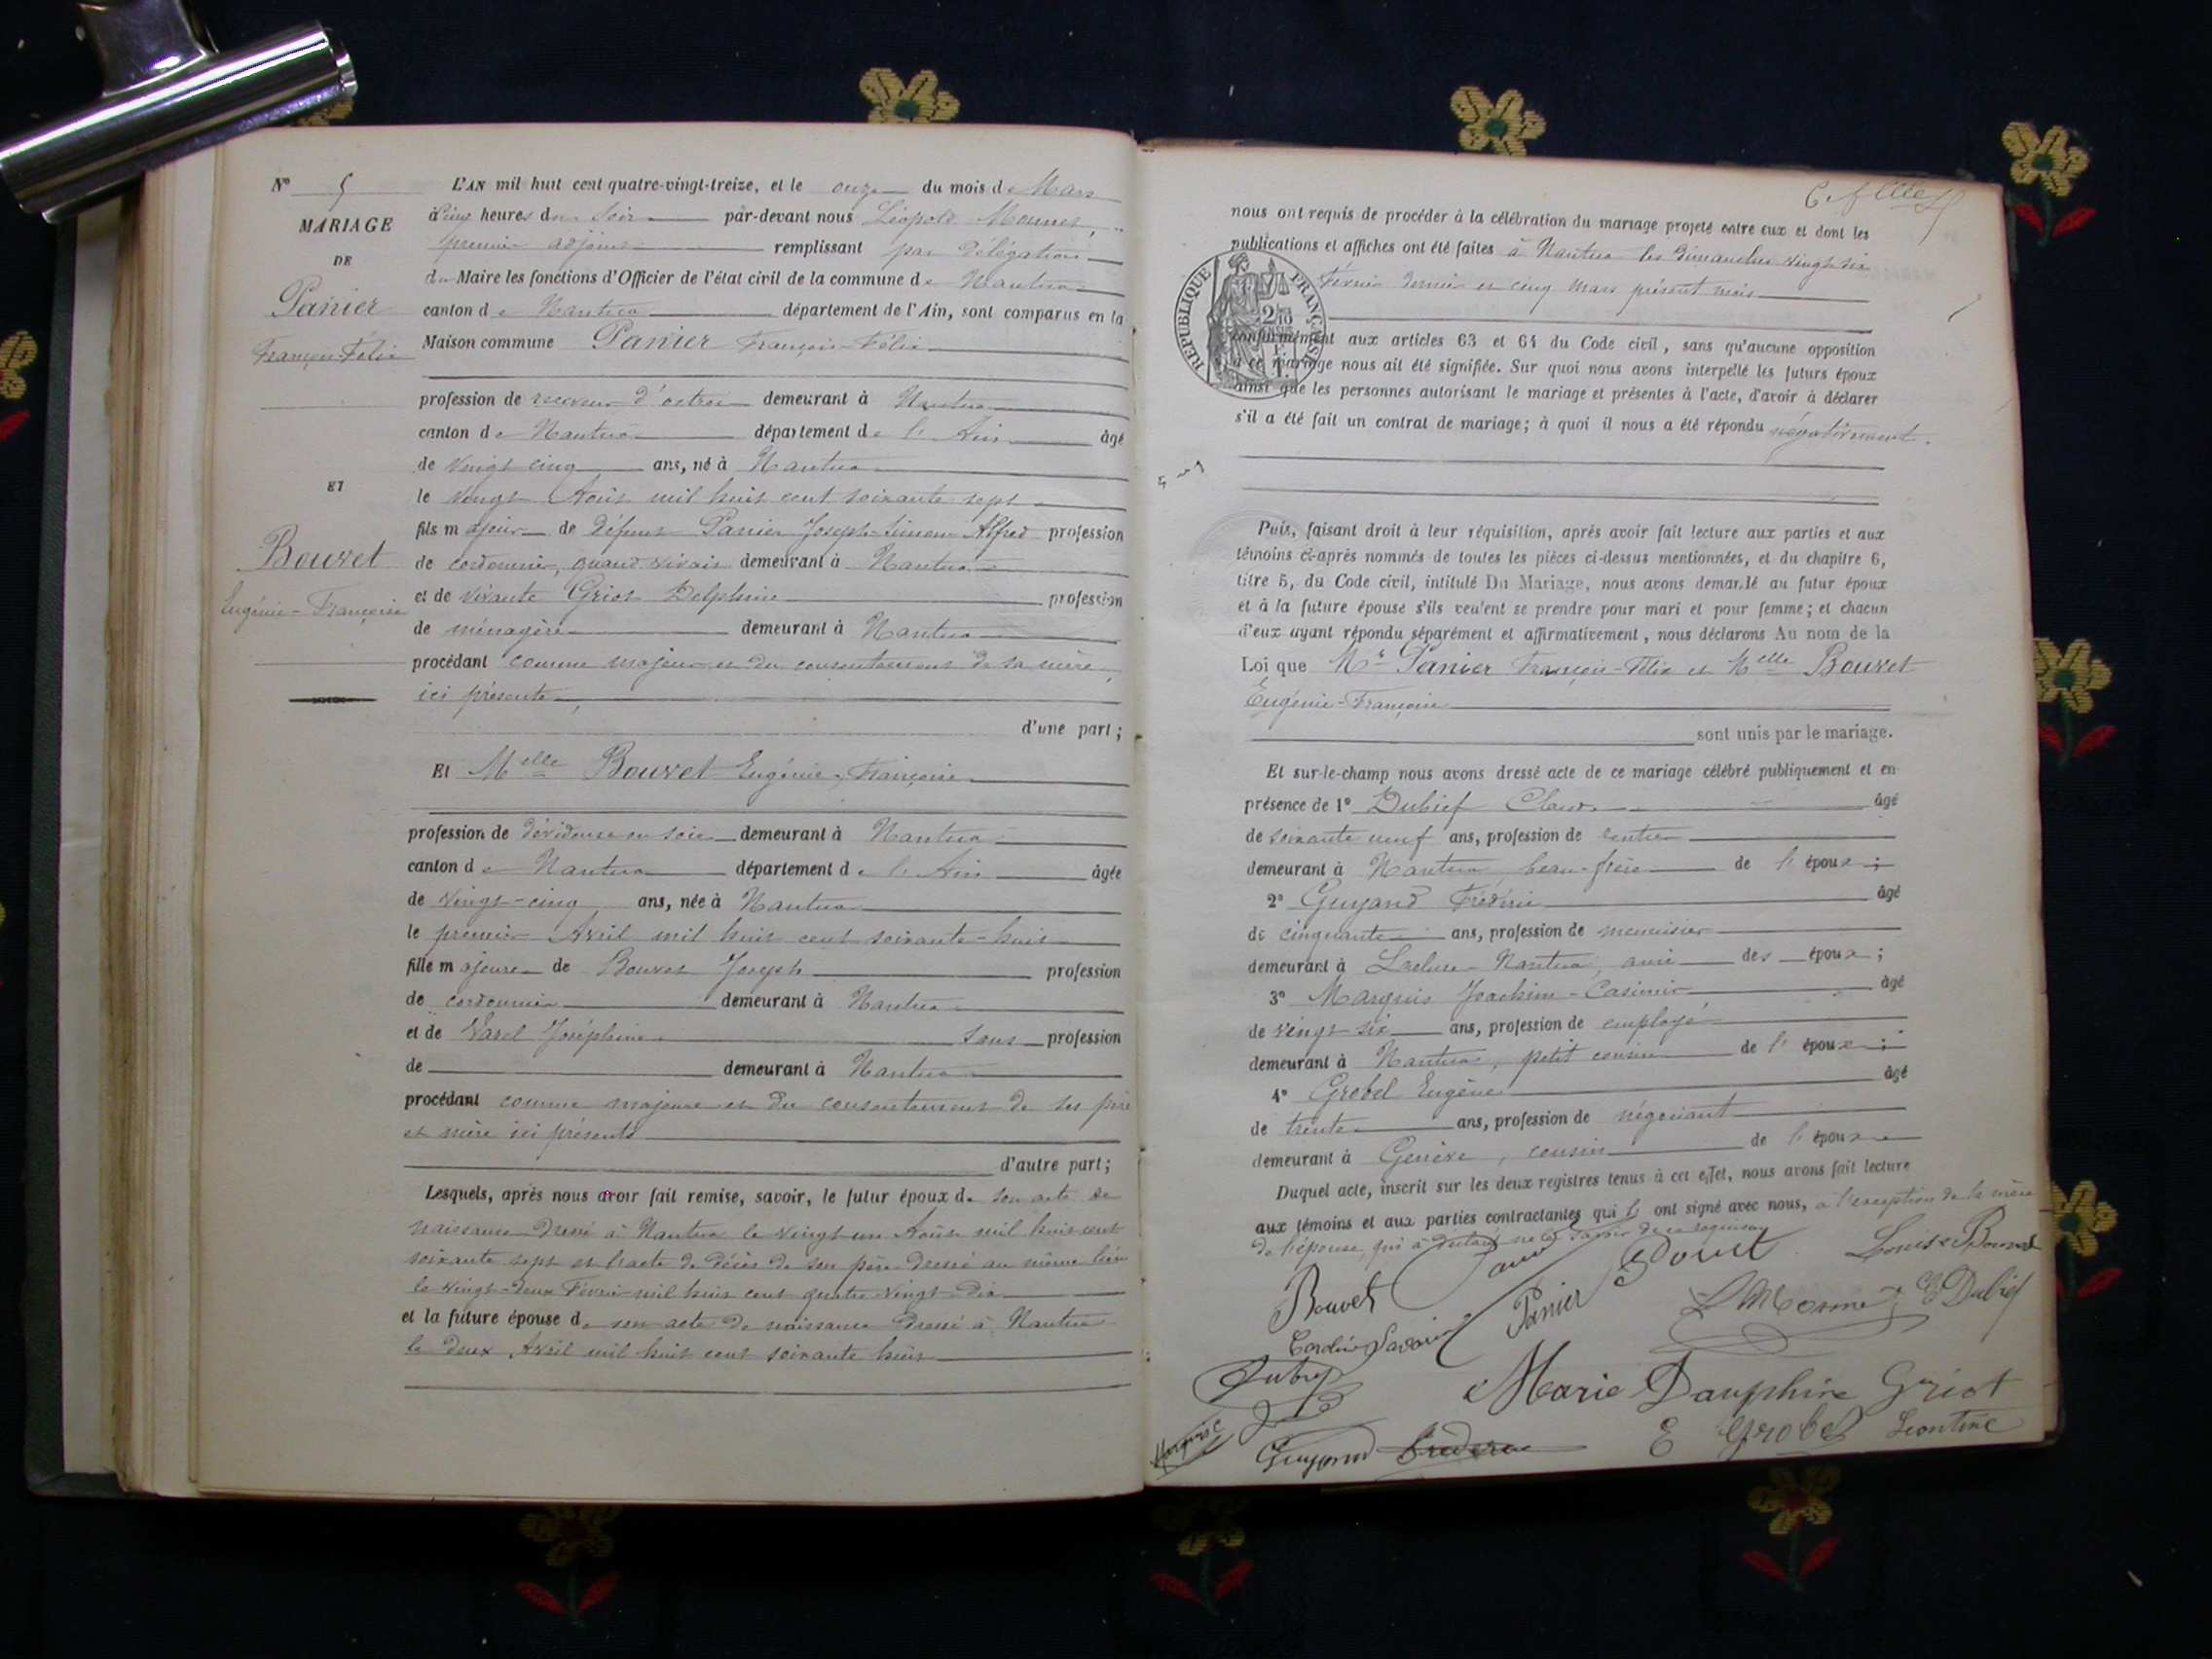 N° 5
MARIAGE
DE
Panier
François-Félix
ET
Bouvet
Eugénie-Françoise
L'AN mil huit cent quatre-vingt-treize, et le onze du mois de Mars
à cinq heures du soir par-devant nous Léopold
premier adjoint remplissant par délégation
du Maire les fonctions d'Officier de l'état civil de la commune de Nantua
canton de Nantua département de l'Ain, sont comparus en la
Maison commune Panier François-Félix
profession de receveur d'octroi demeurant à Nantua
canton de Nantua département de l'Ain âgé
de vingt cinq ans, né à Nantua
le vingt Août mil huit cent soixante sept
fils majeur de défunt Panier Joseph-Simon Alfred profession
de cordonnier, quand vivait demeurant à Nantua
et de vivante Griot Delphine profession
de ménagère demeurant à Nantua
procédant comme majeur et du consentement de sa mère,
ici présente,
d'une part;
Et Melle Bouvet Eugénie, Françoise
profession de dévideuse en soie demeurant à Nantua
canton de Nantua département de l'Ain âgée
de vingt-cinq ans, née à Nantua
le premier Avril mil huit cent soixante-huit
fille majeure de Bouvet Joseph profession
de cordonnier demeurant à Nantua
et de Joséphine sans profession
de demeurant à Nantua
procédant comme majeure et du consentement de ses père
et mère ici présents
d'autre part;
Lesquels, après nous avoir fait remise, savoir, le futur époux de son acte de
naissance dressé à Nantua le vingt un Août mil huit cent
soixante sept et l'acte de décès de son père dressé au même lieu
le vingt-deux Février mil huit cent quatre vingt dix
et la future épouse de son acte de naissance dressé à Nantua
le deux Avril mil huit cent soixante huit
nous ont requis de procéder à la célébration du mariage projeté entre eux et dont les
publications et affiches ont été faites à Nantua les dimanches vingt six
Février dernier et cinq Mars présent mois
RÉPUBLIQUE FRANÇAISE
conformément aux articles 63 et 64 du Code civil, sans qu'aucune opposition
à ce mariage nous ait été signifiée. Sur quoi nous avons interpellé les futurs époux
ainsi que les personnes autorisant le mariage et présentes à l'acte, d'avoir à déclarer
s'il a été fait un contrat de mariage; à quoi il nous a été répondu négativement.
Puis, faisant droit à leur réquisition, après avoir fait lecture aux parties et aux
témoins ci-après nommés de toutes les pièces ci-dessus mentionnées, et du chapitre 6,
titre 5, du Code civil, intitulé Du Mariage, nous avons demandé au futur époux
et à la future épouse s'ils veulent se prendre pour mari et pour femme; et chacun
d'eux ayant répondu séparément et affirmativement, nous déclarons Au nom de la
Loi que Mr Panier François-Félix et Melle Bouvet
Eugénie-Françoise
sont unis par le mariage.
Et sur-le-champ nous avons dressé acte de ce mariage célébré publiquement et en
présence de 1° Dubief Claude âgé
de soixante neuf ans, profession de rentier
demeurant à Nantua, beau-frère de l'époux;
2° Guyand Frédéric âgé
de cinquante ans, profession de menuisier
demeurant à Nantua, ami des époux;
3° Marquis Joachim-Casimir âgé
de vingt six ans, profession de employé
demeurant à Nantua, petit cousin de l'épouse;
4° Grobel Eugène âgé
de trente ans, profession de négociant
demeurant à Genève, cousin de l'épouse
Duquel acte, inscrit sur les deux registres tenus à cet effet, nous avons fait lecture
aux témoins et aux parties contractantes qui ont signé avec nous, à l'exception de la mère
de l'épouse, qui a déclaré ne le savoir de ce requise
Bouvet Panier Louise Bouvet
Dubief
Marie Dauphine Griot
Guyand E Grobel Léontine